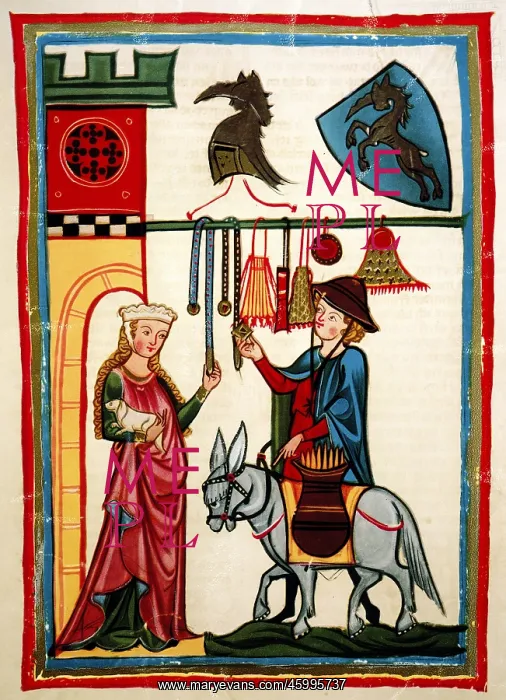 ME
PL
ME
PL
www.maryevans.com/45995737